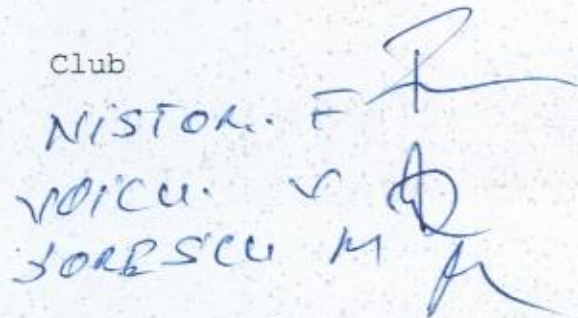 Club
NISTOR. F
VOICU. V
SORESCU M